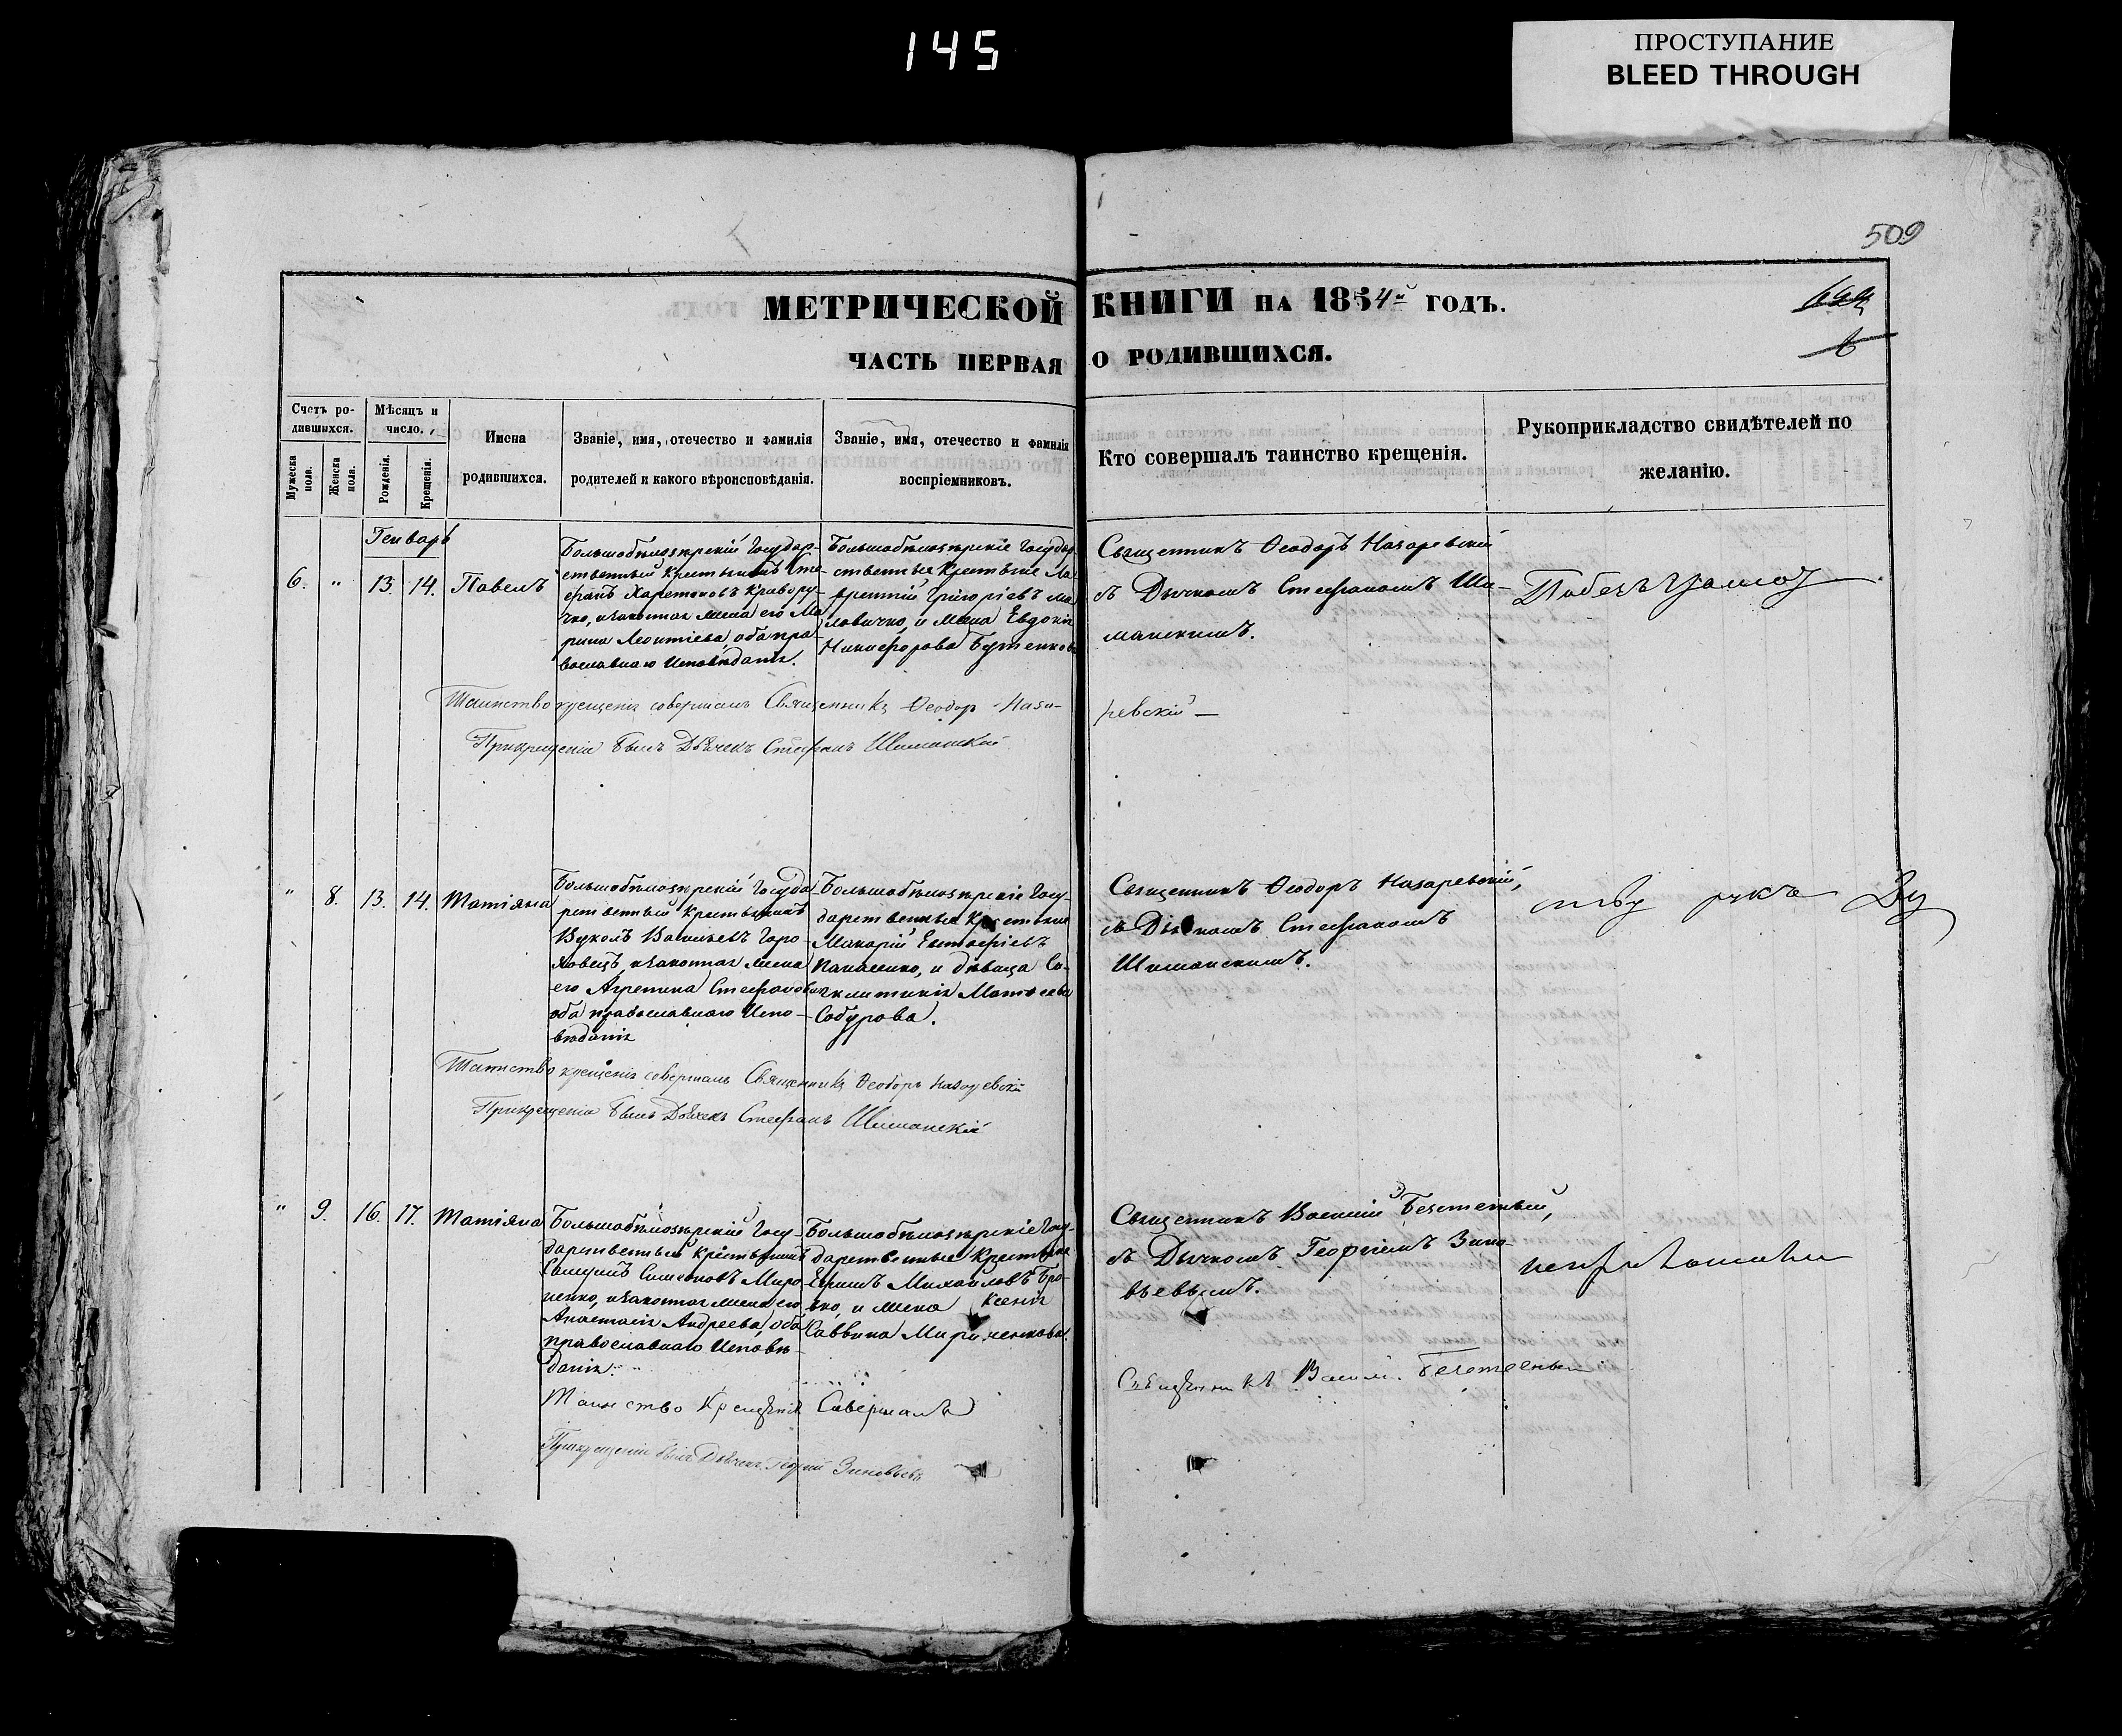 145
ПРОСТУПАНИЕ
BLEED THROUGH
509
МЕТРИЧЕСКОЙ КНИГИ НА 1854й ГОДЪ.
ЧАСТЬ ПЕРВАЯ О РОДИВШИХСЯ.
Счетъ ро-
дившихся.
Мужеска пола.
Женска пола.
Мѣсяцъ и
число.
Рожденія.
Крещенія.
Имена
родившихся.
Званіе, имя, отечество и фамилія
родителей и какого вѣроисповѣданія.
Званіе, имя, отечество и фамилія
воспріемниковъ.
Кто совершалъ таинство крещенія.
Рукоприкладство свидѣтелей по
желанію.
Генварь
6. " 13. 14. Павелъ
Большобѣлозѣрскій Государ-
ственный крестьянинъ Сте-
фанъ Харитоновъ Кривору-
чко, и законная жена его Ма
рина Леонтіева, оба пра-
вославнаго исповѣданія.
Большобѣлозѣрскіе Государ
ственные Крестьяне Ла-
врентій Григоріевъ Ма
ловичко, и жена Евдокія
Никифорова Бутенкова
Священникъ Ѳеодоръ Назаревскій
съ Дьячкомъ Стефаномъ Ши-
манскимъ.
Таинство крещенія совершалъ Священникъ Ѳеодоръ Наза-
ревскій
При крещеніи былъ Дьячекъ Стефанъ Шиманскій
" 8. 13. 14. Татіяна
Большобѣлозѣрскій Госуда
рственный крестьянинъ
Вуколъ Васильевъ Горо-
ховецъ, и законная жена
его Агрепина Стефанова
оба православнаго испо-
вѣданія
Большобѣлозѣрскіе Госу-
дарственные Крестьяне
Макарій Евстафіевъ
Панасенко, и дѣвица Си-
нклитикія Матѳеева
Собурова.
Священникъ Ѳеодоръ Назаревскій,
съ Дьячкомъ Стефаномъ
Шиманскимъ.
Таинство крещенія совершалъ Священникъ Ѳеодоръ Назаревскій
При крещеніи былъ Дьячекъ Стефанъ Шиманскій
" 9. 16. 17. Татіяна
Большобѣлозѣрскій Госу-
дарственный крестьянинъ
Симеоновъ Миро
ненко, и законная жена его
Анастасія Андреева, оба
православнаго исповѣ-
данія.
Большобѣлозѣрскіе Госу-
дарственные Крестьяне
Ефимъ Михайловъ Бро-
вко, и жена Ксенія
Саввина Мироненкова.
Священникъ Василій
съ Дьячкомъ Георгіемъ Зино-
вьевымъ.
Таинство Крещенія Совершалъ
Священникъ Васил.
При крещеніи былъ Дьячекъ Георгій Зиновьевъ